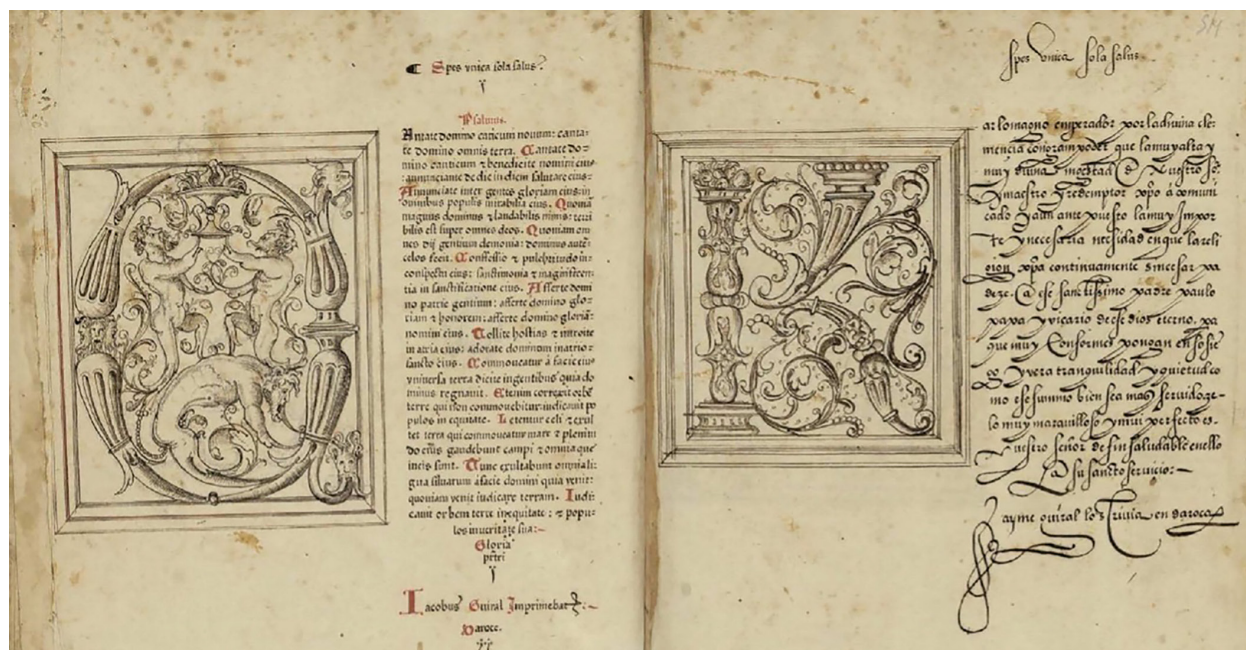 Spes vnica sola salus.
Psalmus.
Antate domino cāticum nouum: canta-
te domino omnis terra. Cantate do-
mino canticum ⁊ benedicite nomini eius
: annunciate de die in diem salutare eius:
Annunciate inter gentes gloriam eius: in
omnibus populis mirabilia eius. Quoniā
magnus dominus ⁊ laudabilis nimis: terri
bilis est super omnes deos. Quoniam om
nes dij gentium demonia: dominus autē
celos fecit. Confessio ⁊ pulchritudo in
conspectu eius: sanctimonia ⁊ magnificen
tia in sanctificatione eius. Afferte domi
no patrie gentium: afferte domino glo-
riam ⁊ honorem: afferte domino gloriā
nomini eius. Tollite hostias ⁊ introite
in atria eius: adorate dominum in atrio
sancto eius. Commoueatur à facie eius
vniuersa terra dicite in gentibus quia do
minus regnauit. Etenim correxit orbē
terre qui non commouebitur: iudicauit po
pulos in equitate. Letentur celi ⁊ exul
tet terra commoueatur mare ⁊ plenitu
do eius gaudebunt campi ⁊ omnia que
in eis sunt. Tunc exultabunt omnia li:
gna siluarum à facie domini quia venit:
quoniam venit iudicare terram. Iudi:
cauit orbem terre in equitate: ⁊ popu-
los in ueritate sua:-
Gloria
pr̄tri
Iacobus Guiral Imprimebat
Daroce.
SM
Spes vnica sola salus.
arlo magno emperador por la diuina cle:
mencia con gram poder que la muy alta y
muy diuina magestad de Nuestro Sor.
maestro Iredemptor xpo à comuni
cado y aun ante puesto la muy impor
te y necesaria nesidad en que la reli
gion xpa continuamente sin cesar pa
deze. Ca ese sanctissimo padre paulo
papa y vicario de ese dios eterno. pa
que muy Conformes pongan en sosie
go y vera tranquilidad y quietud co
mo ese summo bien sea mas seruido. ze-
lo muy marauilloso y mui perfecto es-
nuestro señor de fin saludable en ello
Ca su sancto seruicio:-
ayme guiral lo escriuia en daroca